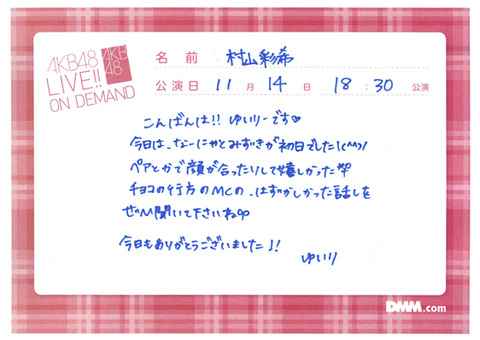 AKB48
LIVE!!
ON DEMAND
AKB
48
名前 村山彩希
公演日 11月14日 18:30 公演
こんばんは!! ゆいりーです♡
今日は、なーにゃとみずきが初日でした!(^^)/
ペアとかで顔が合ったりして嬉しかった
チョコの行方のMCの、はずかしかった話しを
ぜひ聞いて下さいね
今日もありがとうございました♪!!
ゆいり
DMM.com